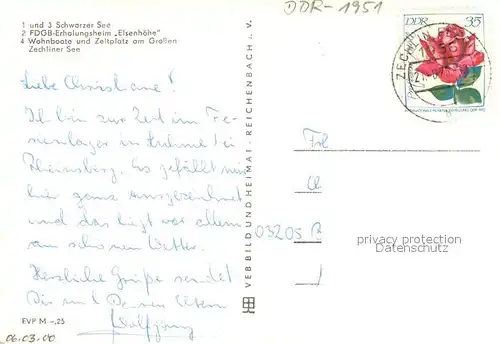 1 und 3 Schwarzer See
2 FDGB-Erholungsheim „Elsenhöhe"
4 Wohnboote und Zeltplatz am Großen
Zechliner See
DDR-1951
DDR 35
ZECHLIN
Liebe Christiane!
Ich bin zur Zeit im Fe-
rienlager in bei
Rheinsberg. Es gefällt mir
hier ganz ausgezeichnet
und das liegt vor allem
am schönen Wetter.
Herzliche Grüße sendet
Dir und Deinen Eltern
Wolfgang
EVP M -,25
06.03.00
VEB BILD UND HEIMAT · REICHENBACH i. V.
Frl
03205 B
privacy protection
DATENSCHUTZ